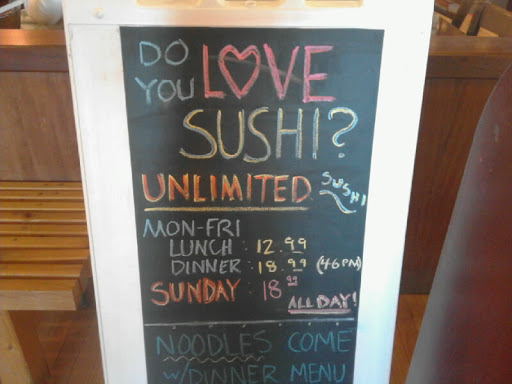 DO YOU LOVE
SUSHI?
UNLIMITED SUSHI
MON-FRI
LUNCH : 12.99
DINNER : 18.99 (46PM)
SUNDAY : 18 99
ALL DAY!
NOODLES COME
W/DINNER MENU